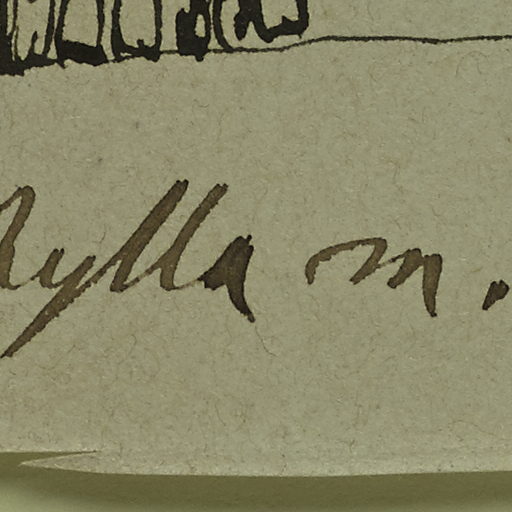 hylla m.